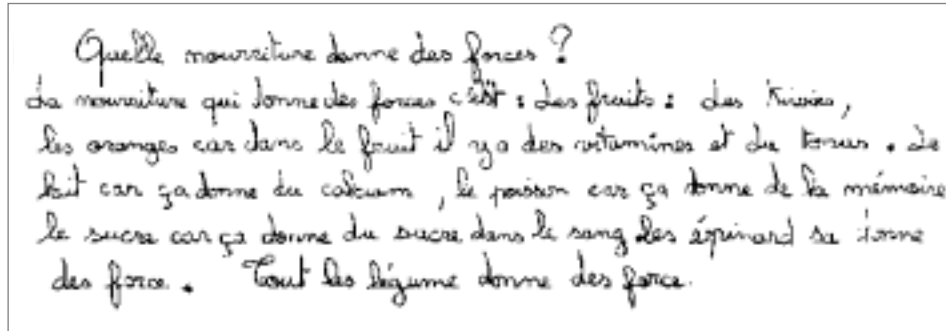 Quelle nourriture donne des forces ?
La nourriture qui donne des forces c'est : des fruits : des kiwis,
les oranges car dans le fruit il y a des vitamines et du tonus. Le
lait car ça donne du calcium, le poisson car ça donne de la mémoire
le sucre car ça donne du sucre dans le sang les épinard sa donne
des force. Tout les légume donne des force.